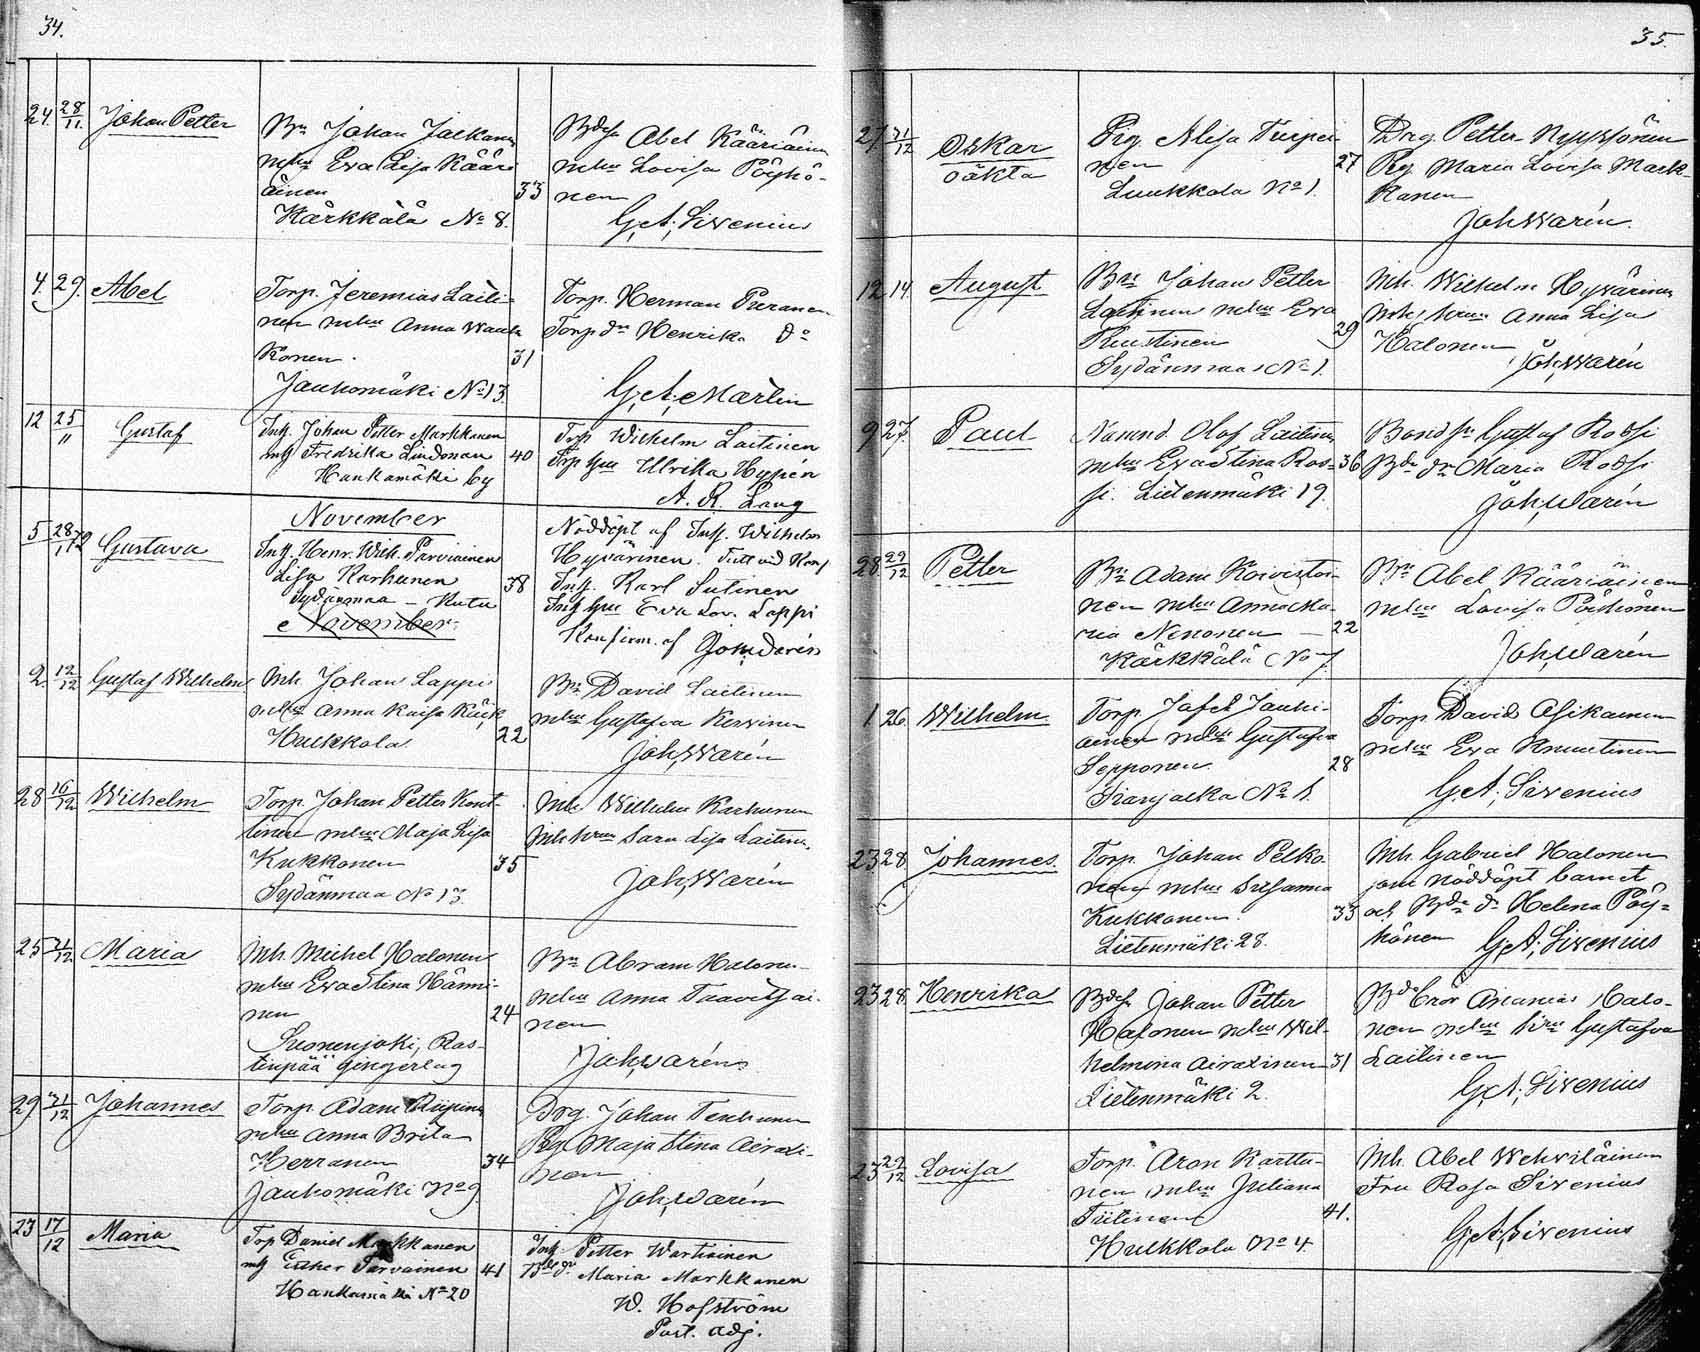 34.
24. 28/11. Johan Petter
Bn Johan Jalkanen
mhu Eva Lisa Kääri-
äinen 33
Kärkkälä No 8.
Abel Kääriäinen
mhu Lovisa Pöyhö-
nen
G. A. Sirenius
4. 29. Abel
Torp. Jeremias Laiti-
nen mhu Anna
konen. 31
Jauhomäki No 13.
Torp. Herman Puranen
Torp dr Henrika Do
G. A. Marlin
12 25/11 Gustaf
Inh. Johan Petter Markkanen
mh Fredrika Lindman 40
Hankamäki by
Torp Wilhelm Laitinen
Torp hu Ulrika Hypén
A. R. Lang
November
5 28/11 72 Gustava
Inh. Henr. Wilh. Parviainen
Lisa Karhunen 38
Sydänmaa - Kutu
November
Nöddöpt af Inh. Wilhelm
Hyvärinen.
Inh. Karl Sutinen
Inh hu Eva Lov. Lappi
Konfirm. af Joh. Warén
2. 12/12 Gustaf Wilhelm
Inh. Johan Lappi
mhu Anna Kaisa Kuik
Hulkkola 22
Bn David Laitinen
mhu Gustafva Kervinen
Joh. Warén
28 16/12 Wilhelm
Torp. Johan Petter Kont-
tinen mhu Maja Lisa
Kukkonen 35
Sydänmaa No 13.
Inh. Wilhelm Karhunen
Inh hru Sara Lisa Laitinen
Joh. Warén
25 21/12 Maria
Inh. Michel Halonen
mhu Eva Stina Hänni-
nen 24
Suonenjoki, Ras-
tinpää gingerlag
Bn Abram Halonen
mhu Anna Taavitsai-
nen
Joh. Warén
29 21/12 Johannes
Torp. Adam Riipinen
mhu Anna Brita
Herranen 34
Jauhomäki No 9
Drg. Johan Tenhunen
Pig. Maja Stina Airaxi-
nen
Joh. Warén
23 17/12 Maria
Torp Daniel Markkanen
mh Ester Tarvainen 41
Hankamäki No 20
Inh. Petter Wartiainen
Bde dr Maria Markkanen
W. Hofström
Past. adj.
35.
27 21/12 Oskar
oäkta
Pig. Alisa Turpei-
nen 27
Luukkola No 1.
Drg. Petter Nyyssönen
Pig. Maria Lovisa Mark-
kanen
Joh Warén.
12 14 August
Bn Johan Petter
Laitinen mhu Eva
Ruustinen 29
Sydänmaa No 1.
Inh. Wilhelm Hyvärinen
Inh. hru Anna Lisa
Halonen
Joh. Warén
9 27 Paul
Olof Laitinen
mhu Eva Stina Ros- 36
si. Lietenmäki 19.
Bondsn Gustaf Rossi
Bde dr Maria Rossi
Joh. Warén
28 22/12 Petter
Bn Adam Koivistoi-
nen mhu Anna Ma-
ria Nenonen - 22
Kärkkälä No 7.
Bn Abel Kääriäinen
mhu Lovisa Pöyhönen
Joh. Warén
1. 26. Wilhelm
Torp. Jafet Jauhi-
ainen mhu Gustafva
Sepponen. 28
Sianjalka No 1.
Torp. David Asikainen
mhu Eva Knuutinen
G. A. Sirenius
23 28 Johannes.
Torp. Johan Pelko-
nen mhu Susanna
Kukkonen. 33
Lietenmäki 28.
Inh. Gabriel Halonen
som nöddöpt barnet
och Bde dr Helena Pöy-
hönen G. A. Sirenius
23 28. Henrika
Johan Petter
Halonen mhu Wil-
helmina Airaxinen 31
Lietenmäki 2.
Bde bror Ananias Halo-
nen mhu hru Gustafva
Laitinen
G. A. Sirenius
23 29/12 Lovisa
Torp. Aron Karttu-
nen mhu Juliana
Tiitinen 41.
Hulkkola No 4.
Inh. Abel Wehviläinen
Fru Rosa Sirenius
G. A. Sirenius